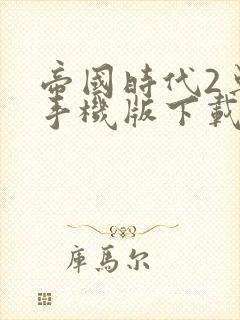 帝國時代2
手機版下載
庫馬尔